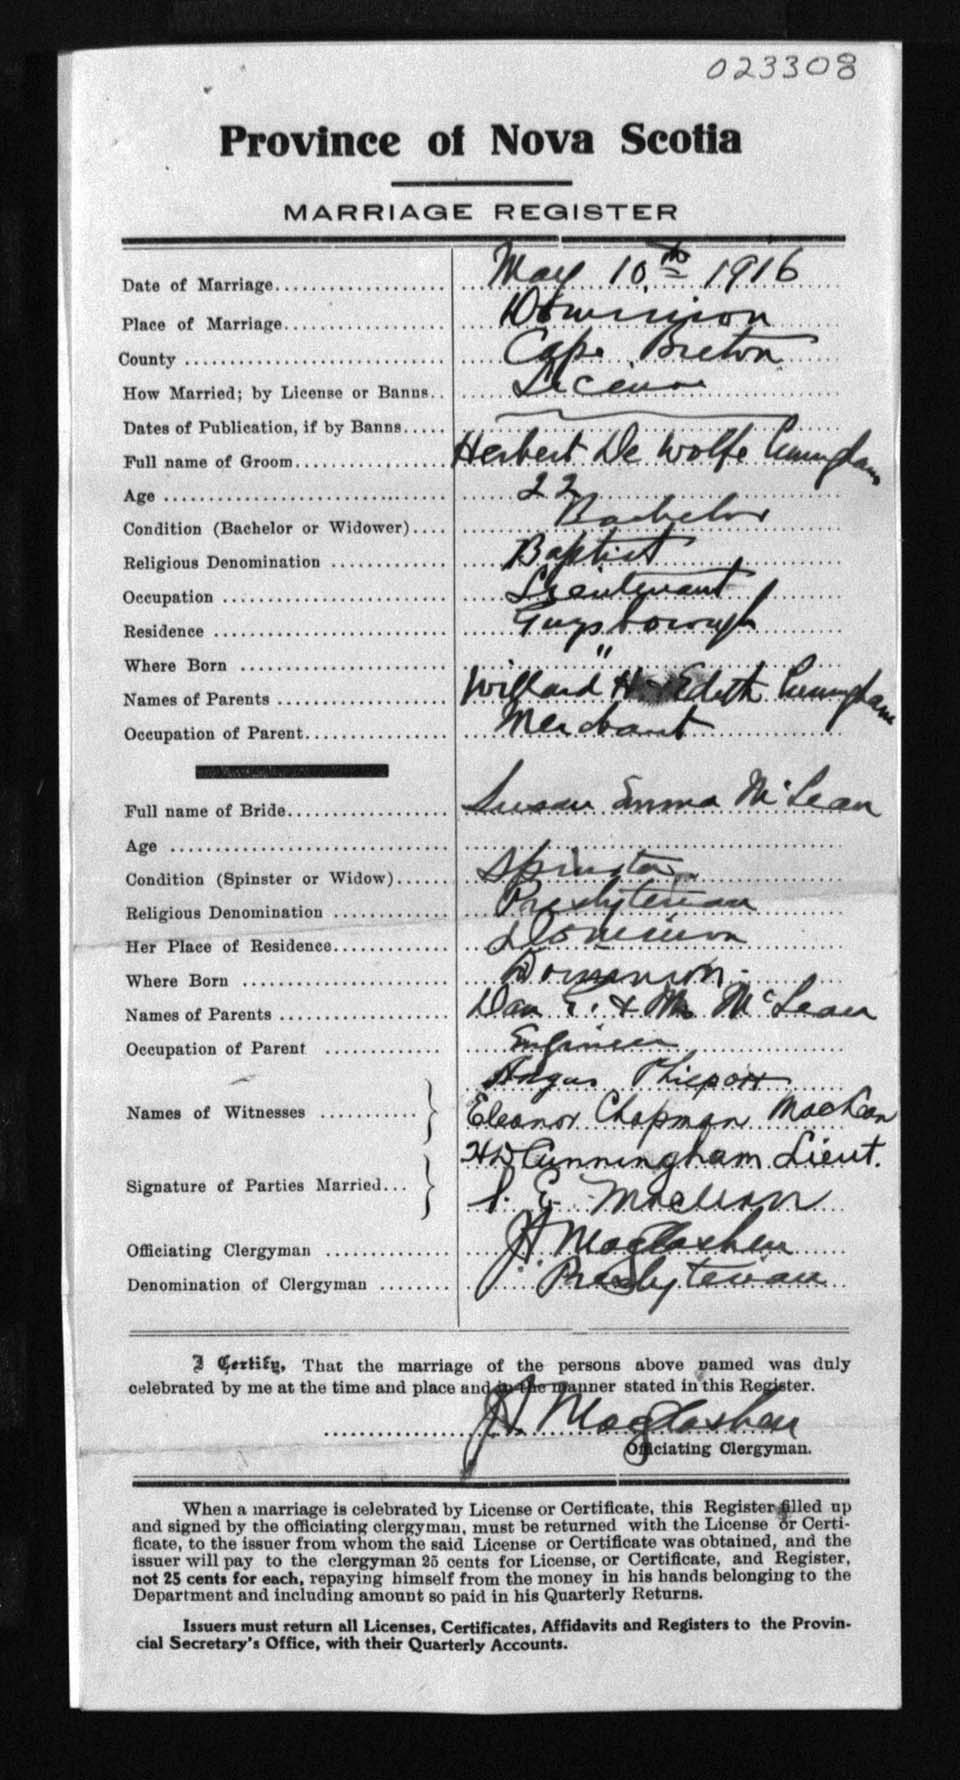 023308
Province of Nova Scotia
MARRIAGE REGISTER
Date of Marriage.................... May 10th 1916
Place of Marriage.................. Dominion
County ............................ Cape Breton
How Married; by License or Banns.. License
Dates of Publication, if by Banns.....
Full name of Groom................ Herbert De Wolfe Cunningham
Age ............................... 22
Condition (Bachelor or Widower).... Bachelor
Religious Denomination ............ Baptist
Occupation ........................ Lieutenant
Residence ......................... Guysborough
Where Born ...................... "
Names of Parents .................. Willard H. Edith Cunningham
Occupation of Parent............... Merchant
Full name of Bride................. Susan Emma McLean
Age ..............................
Condition (Spinster or Widow)...... Spinster
Religious Denomination ............ Presbyterian
Her Place of Residence............. Dominion
Where Born ...................... Dominion
Names of Parents .................. Dan & Mrs McLean
Occupation of Parent ............. Engineer
Angus
Names of Witnesses ............ } Eleanor Chapman MacLean
H D Cunningham Lieut.
Signature of Parties Married... } S. E. MacLean
Officiating Clergyman ............. Maglashen
Denomination of Clergyman ........ Presbyterian
I Certify, That the marriage of the persons above named was duly
celebrated by me at the time and place and in the manner stated in this Register.
Maglashen
Officiating Clergyman.
When a marriage is celebrated by License or Certificate, this Register filled up
and signed by the officiating clergyman, must be returned with the License or Certi-
ficate, to the issuer from whom the said License or Certificate was obtained, and the
issuer will pay to the clergyman 25 cents for License, or Certificate, and Register,
not 25 cents for each, repaying himself from the money in his hands belonging to the
Department and including amount so paid in his Quarterly Returns.
Issuers must return all Licenses, Certificates, Affidavits and Registers to the Provin-
cial Secretary's Office, with their Quarterly Accounts.